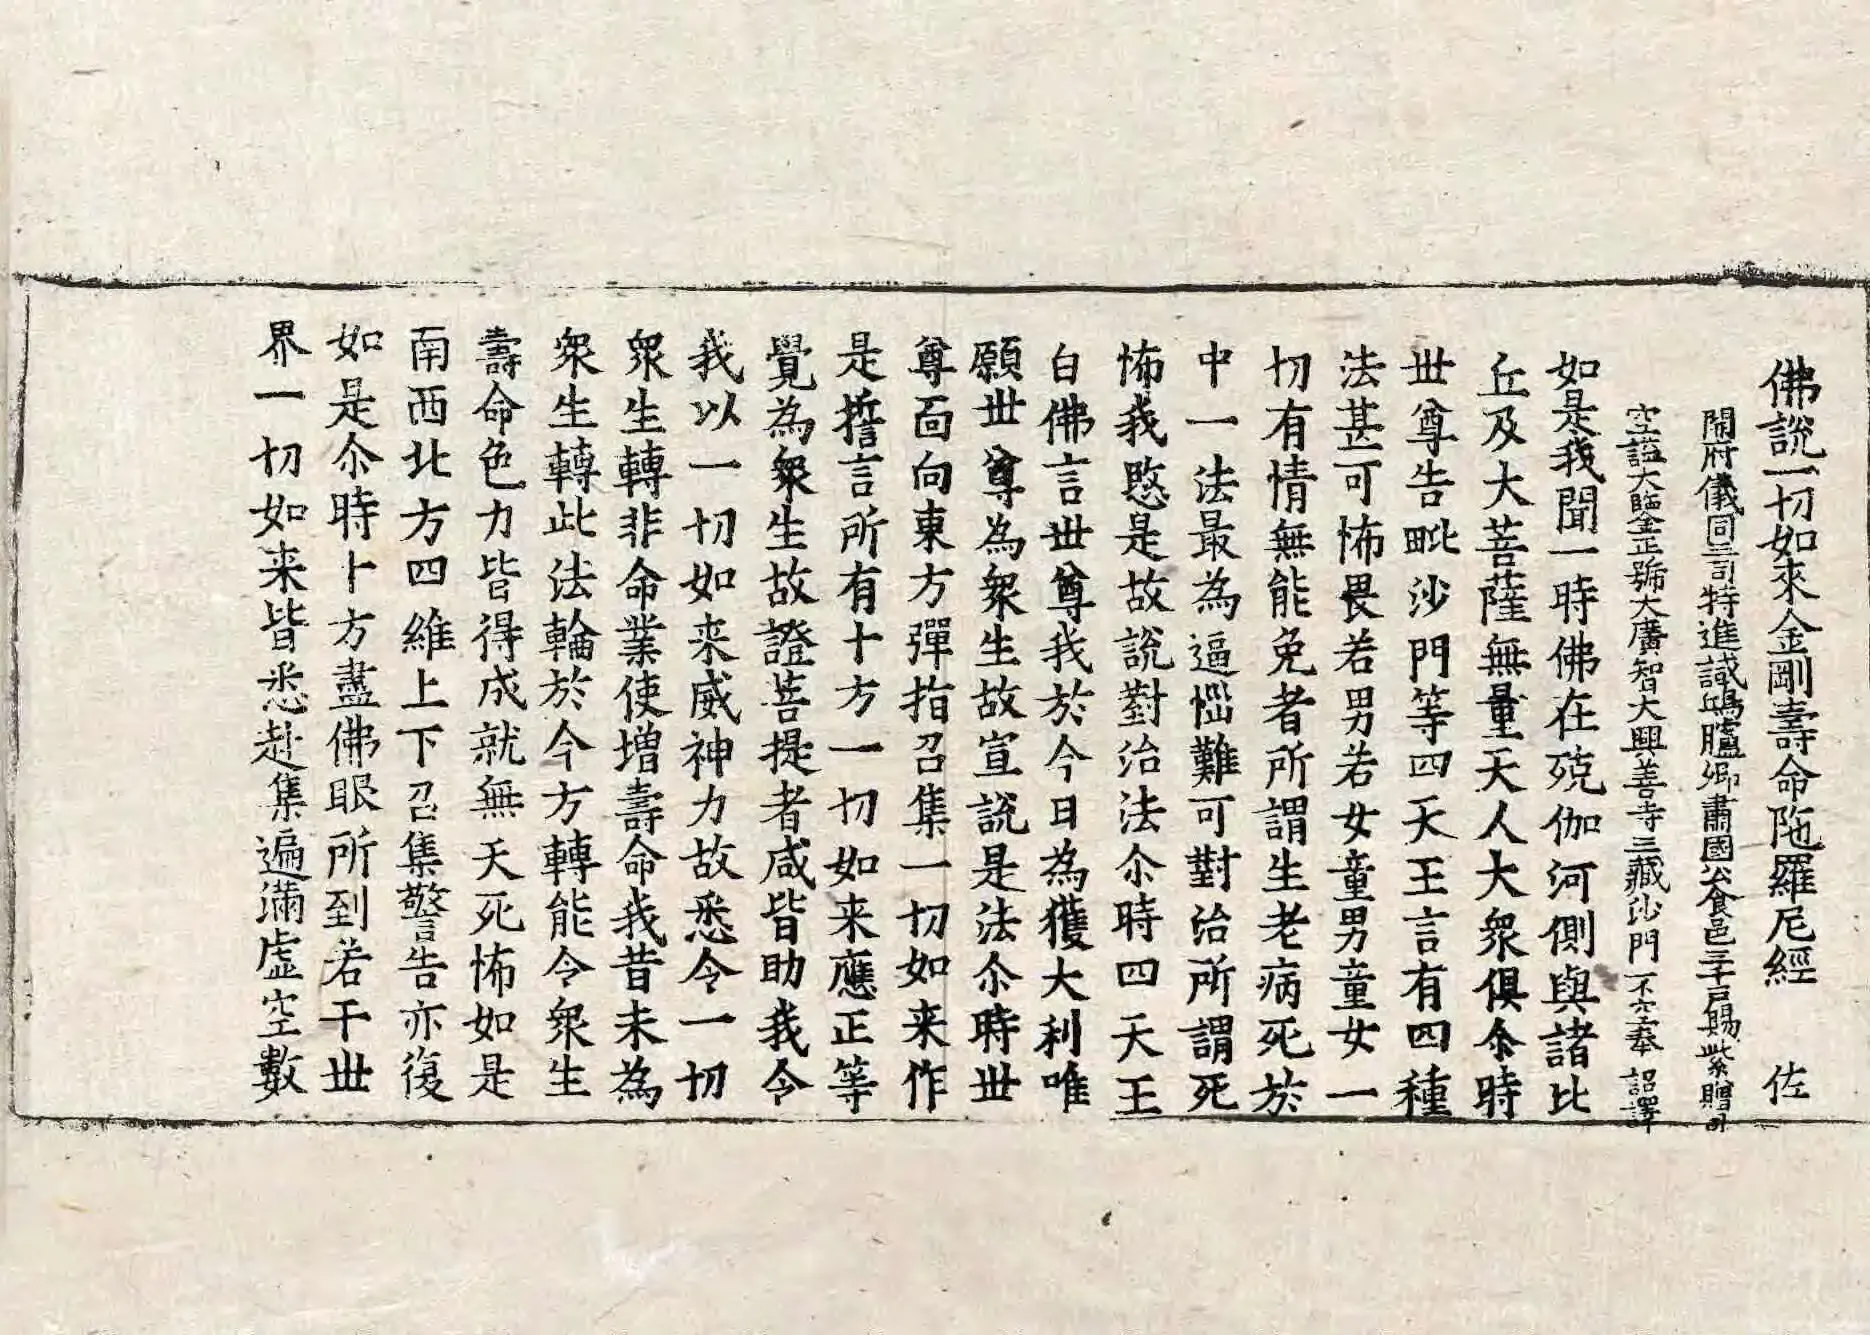 佛說一切如來金剛壽命陁羅尼經 佐
開府儀同三司特進試鴻臚卿肅國公食邑三千戶賜紫贈司
空謚大鑑正號大廣智大興善寺三藏沙門不空奉 詔譯
如是我聞一時佛在殑伽河側與諸比
丘及大菩薩無量天人大衆俱尒時
世尊告毗沙門等四天王言有四種
法甚可怖畏若男若女童男童女一
切有情無能免者所謂生老病死於
中一法最為逼惱難可對治所謂死
怖我愍是故說對治法尒時四天王
白佛言世尊我於今日為獲大利唯
願世尊為衆生故宣說是法尒時世
尊面向東方彈指召集一切如来作
是誓言所有十方一切如来應正等
覺為衆生故證菩提者咸皆助我令
我以一切如来威神力故悉令一切
衆生轉非命業使增壽命我昔未為
衆生轉此法輪於今方轉能令衆生
壽命色力皆得成就無夭死怖如是
南西北方四維上下召集警告亦復
如是尒時十方盡佛眼所到若干世
界一切如来皆悉赴集遍滿虛空數